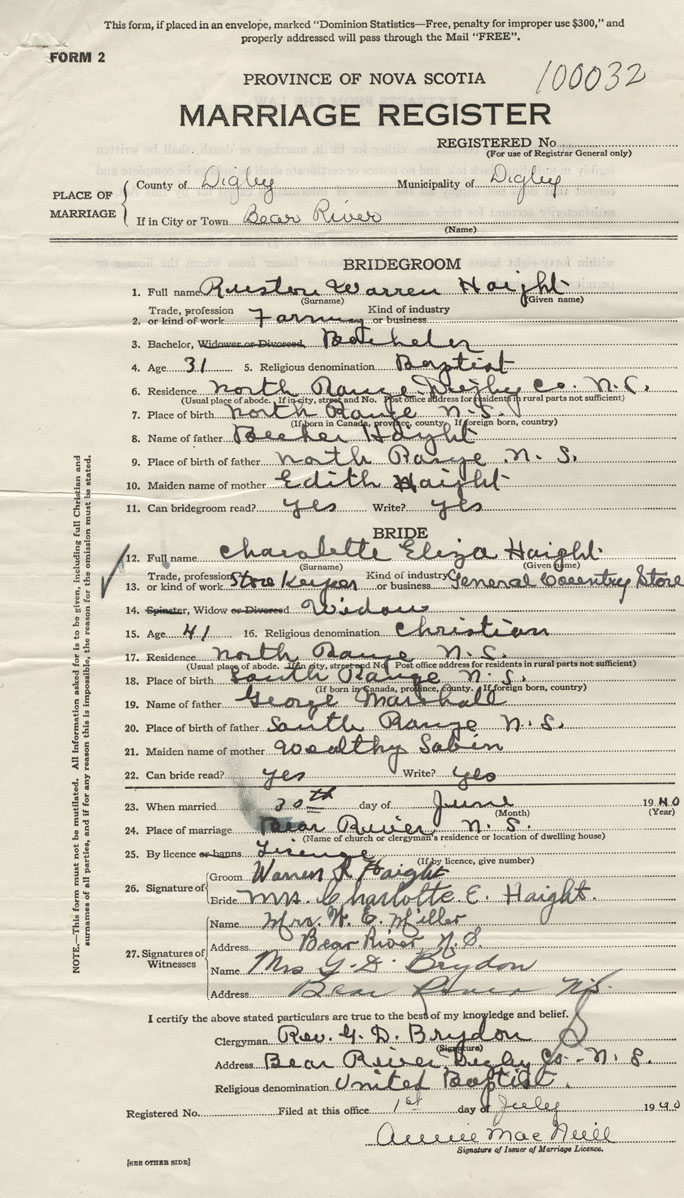 This form, if placed in an envelope, marked "Dominion Statistics—Free, penalty for improper use $300," and
properly addressed will pass through the Mail "FREE".
FORM 2
PROVINCE OF NOVA SCOTIA
100032
MARRIAGE REGISTER
REGISTERED No.
(For use of Registrar General only)
PLACE OF MARRIAGE
County of Digby Municipality of Digby
If in City or Town Bear River
(Name)
BRIDEGROOM
1. Full name Ruston Warren Haight
(Surname) (Given name)
2. Trade, profession or kind of work Farming Kind of industry or business
3. Bachelor, Widower or Divorced Batcheler
4. Age 31 5. Religious denomination Baptist
6. Residence North Range Digby Co. N.S.
(Usual place of abode. If in city, street and No. Post office address for residents in rural parts not sufficient)
7. Place of birth North Range N.S.
(If born in Canada, province, county. If foreign born, country)
8. Name of father Beecher Haight
9. Place of birth of father North Range N. S.
10. Maiden name of mother Edith Haight
11. Can bridegroom read? yes Write? yes
BRIDE
12. Full name Charolette Eliza Haight
(Surname) (Given name)
13. Trade, profession or kind of work Store Keeper Kind of industry or business General Country Store
14. Spinster, Widow or Divorced Widow
15. Age 41 16. Religious denomination Christian
17. Residence North Range N.S.
(Usual place of abode. If in city, street and No. Post office address for residents in rural parts not sufficient)
18. Place of birth South Range N.S.
(If born in Canada, province, county. If foreign born, country)
19. Name of father George Marshall
20. Place of birth of father South Range N.S.
21. Maiden name of mother Wealthy Sabin
22. Can bride read? yes Write? yes
23. When married 30th day of June 1940
(Month) (Year)
24. Place of marriage Bear River N.S.
(Name of church or clergyman's residence or location of dwelling house)
25. By licence or banns License
(If by licence, give number)
26. Signature of
Groom Warren R Haight
Bride Mrs. Charlotte E. Haight.
27. Signatures of Witnesses
Name Mrs. W. E. Miller
Address Bear River, N.S.
Name Mrs G. D. Brydon
Address Bear River N.S.
I certify the above stated particulars are true to the best of my knowledge and belief.
Clergyman Rev. G. D. Brydon
(Signature)
Address Bear River Digby Co. N. S.
Religious denomination United Baptist.
Registered No. Filed at this office 1st day of July 1940
Annie MacNeill
Signature of Issuer of Marriage Licence.
[SEE OTHER SIDE]
NOTE.—This form must not be mutilated. All Information asked for is to be given, including full Christian and
surnames of all parties, and if for any reason this is impossible, the reason for the omission must be stated.